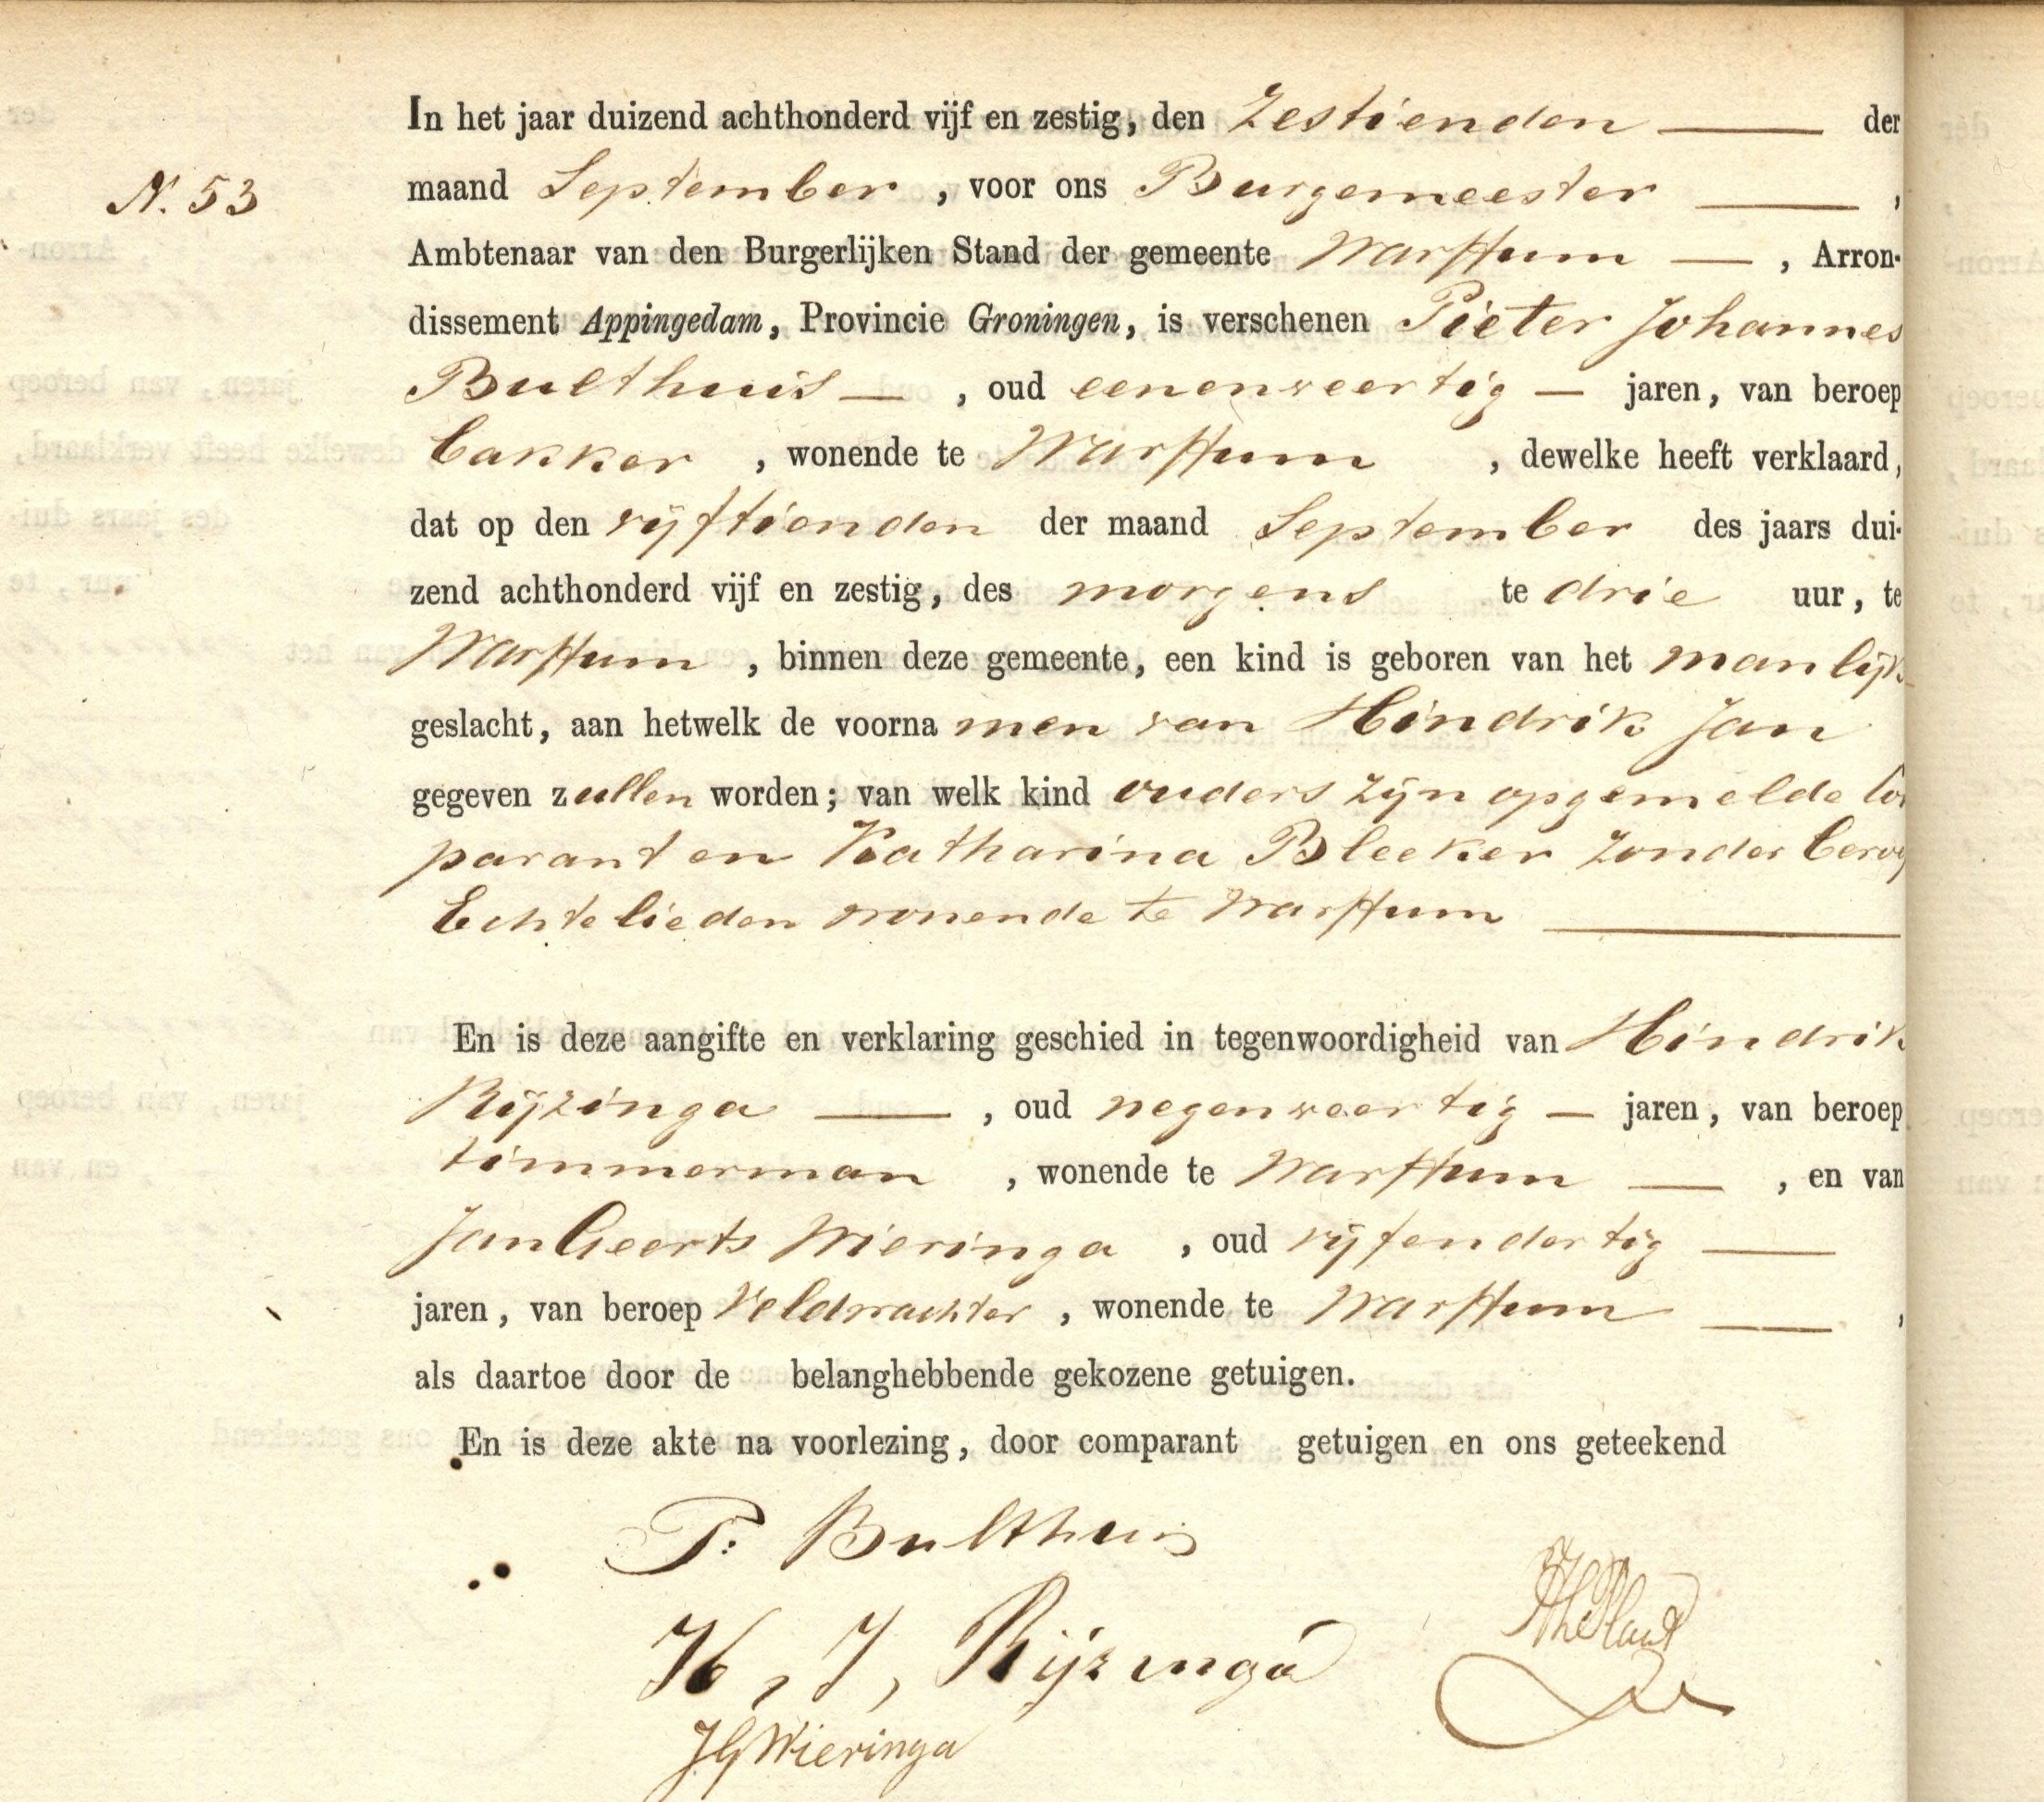 In het jaar duizend achthonderd vijf en zestig, den Zestienden — der
N. 53
maand September , voor ons Burgemeester — ,
Ambtenaar van den Burgerlijken Stand der gemeente Warffum — , Arron-
dissement Appingedam, Provincie Groningen, is verschenen Pieter Johannes
Bulthuis — , oud eenenveertig — jaren, van beroep
bakker , wonende te Warffum , dewelke heeft verklaard,
dat op den vijftienden der maand September des jaars dui-
zend achthonderd vijf en zestig, des morgens te drie uur, te
Warffum , binnen deze gemeente, een kind is geboren van het manlijk
geslacht, aan hetwelk de voornamen van Hindrik Jan
gegeven zullen worden; van welk kind ouders zijn opgemelde Co
parant en Katharina Bleeker zonder beroep
Echtelieden wonende te Warffum —
En is deze aangifte en verklaring geschied in tegenwoordigheid van Hindrik
Rijzinga — , oud negenveertig — jaren, van beroep
timmerman , wonende te Warffum — , en van
Jan Geerts Wieringa , oud vijfendertig —
jaren, van beroep Veldwachter , wonende te Warffum — ,
als daartoe door de belanghebbende gekozene getuigen.
En is deze akte na voorlezing, door comparant getuigen en ons geteekend
P: Bulthuis
H, J, Rijzinga
JGWieringa